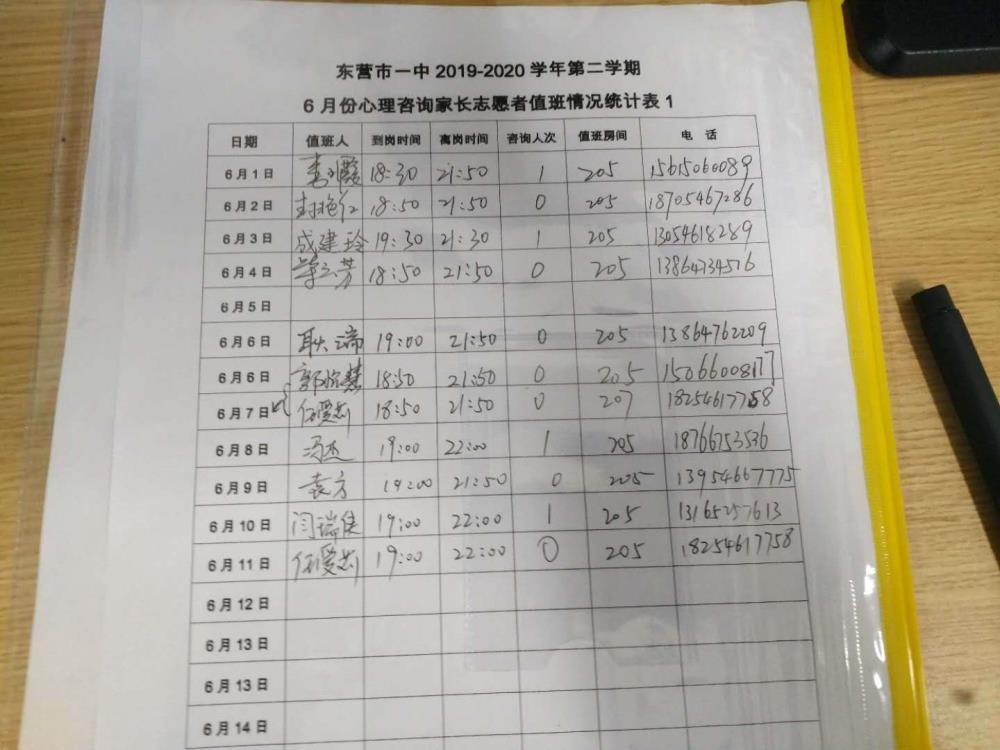 东营市一中 2019-2020 学年第二学期
6 月份心理咨询家长志愿者值班情况统计表 1
日期 值班人 到岗时间 离岗时间 咨询人次 值班房间 电 话
6 月 1 日 18:30 21:50 1 205 15615060089
6 月 2 日 18:50 21:50 0 205 18705467286
6 月 3 日 成建玲 19:30 21:30 1 205 13054618289
6 月 4 日 18:50 21:50 0 205
6 月 5 日
6 月 6 日 耿瑞 19:00 21:50 0 205 13864762209
6 月 6 日 18:50 21:50 0 205 15066008177
6 月 7 日 18:50 21:50 0 207 18254617758
6 月 8 日 冯杰 19:00 22:00 1 205 18766753536
6 月 9 日 袁方 19:00 21:50 0 205 13954667775
6 月 10 日 19:00 22:00 1 205 13165257613
6 月 11 日 19:00 22:00 0 205 18254617758
6 月 12 日
6 月 13 日
6 月 13 日
6 月 14 日